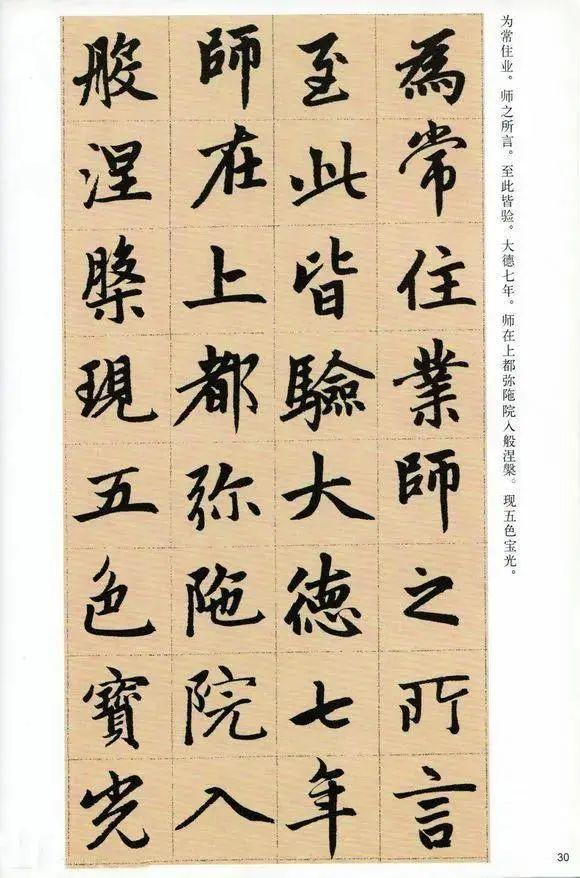 为常住业。师之所言。至此皆验。大德七年。师在上都弥陁院入般涅槃。现五色宝光。
為常住業師之所言
至此皆驗大德七年
師在上都弥陁院入
般涅槃現五色寶光
30